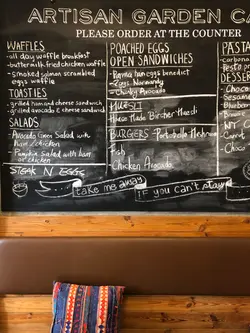 ARTISAN GARDEN C
PLEASE ORDER AT THE COUNTER
WAFFLES
- all day waffle breakfast
- buttermilk fried chicken waffle
- smoked salmon scrambled
eggs waffle
TOASTIES
- grilled ham and cheese sandwich
- grilled avocado & cheese sandwich
SALADS
- Avocado Green Salad with
ham or chicken
- Pumpkin Salad with ham
or chicken
STEAK N EGGS
POACHED EGGS
OPEN SANDWICHES
- eggs benedict
- Eggs Normandy
- Chunky Avocado
MUESLI
House Made Bircher Muesli
BURGERS - Portobello Mushroom
Fish
- Chicken Avocado
PASTA
- Carbona
- Pesto pr
DESSER
- Choco
take me away
IF YOU CAN'T stay